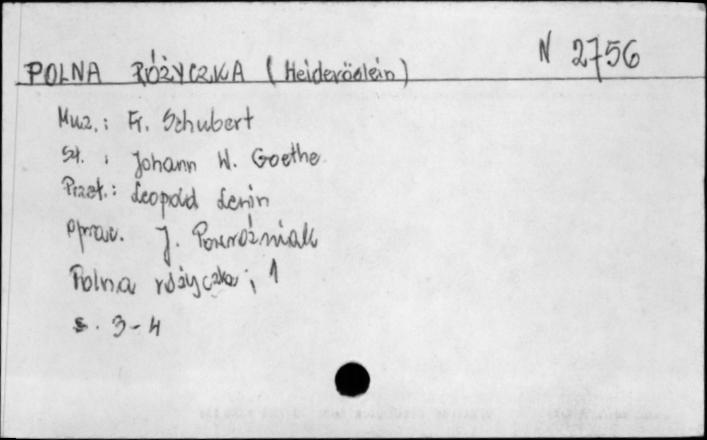 N 2756
POLNA RÓŻYCZKA (Heideröslein)
Muz.: Fr. Schubert
Sł. : Johann W. Goethe
Przeł.: Leopold Lewin
oprac. J. Powroźniak
Polna różyczka; 1
s. 3-4